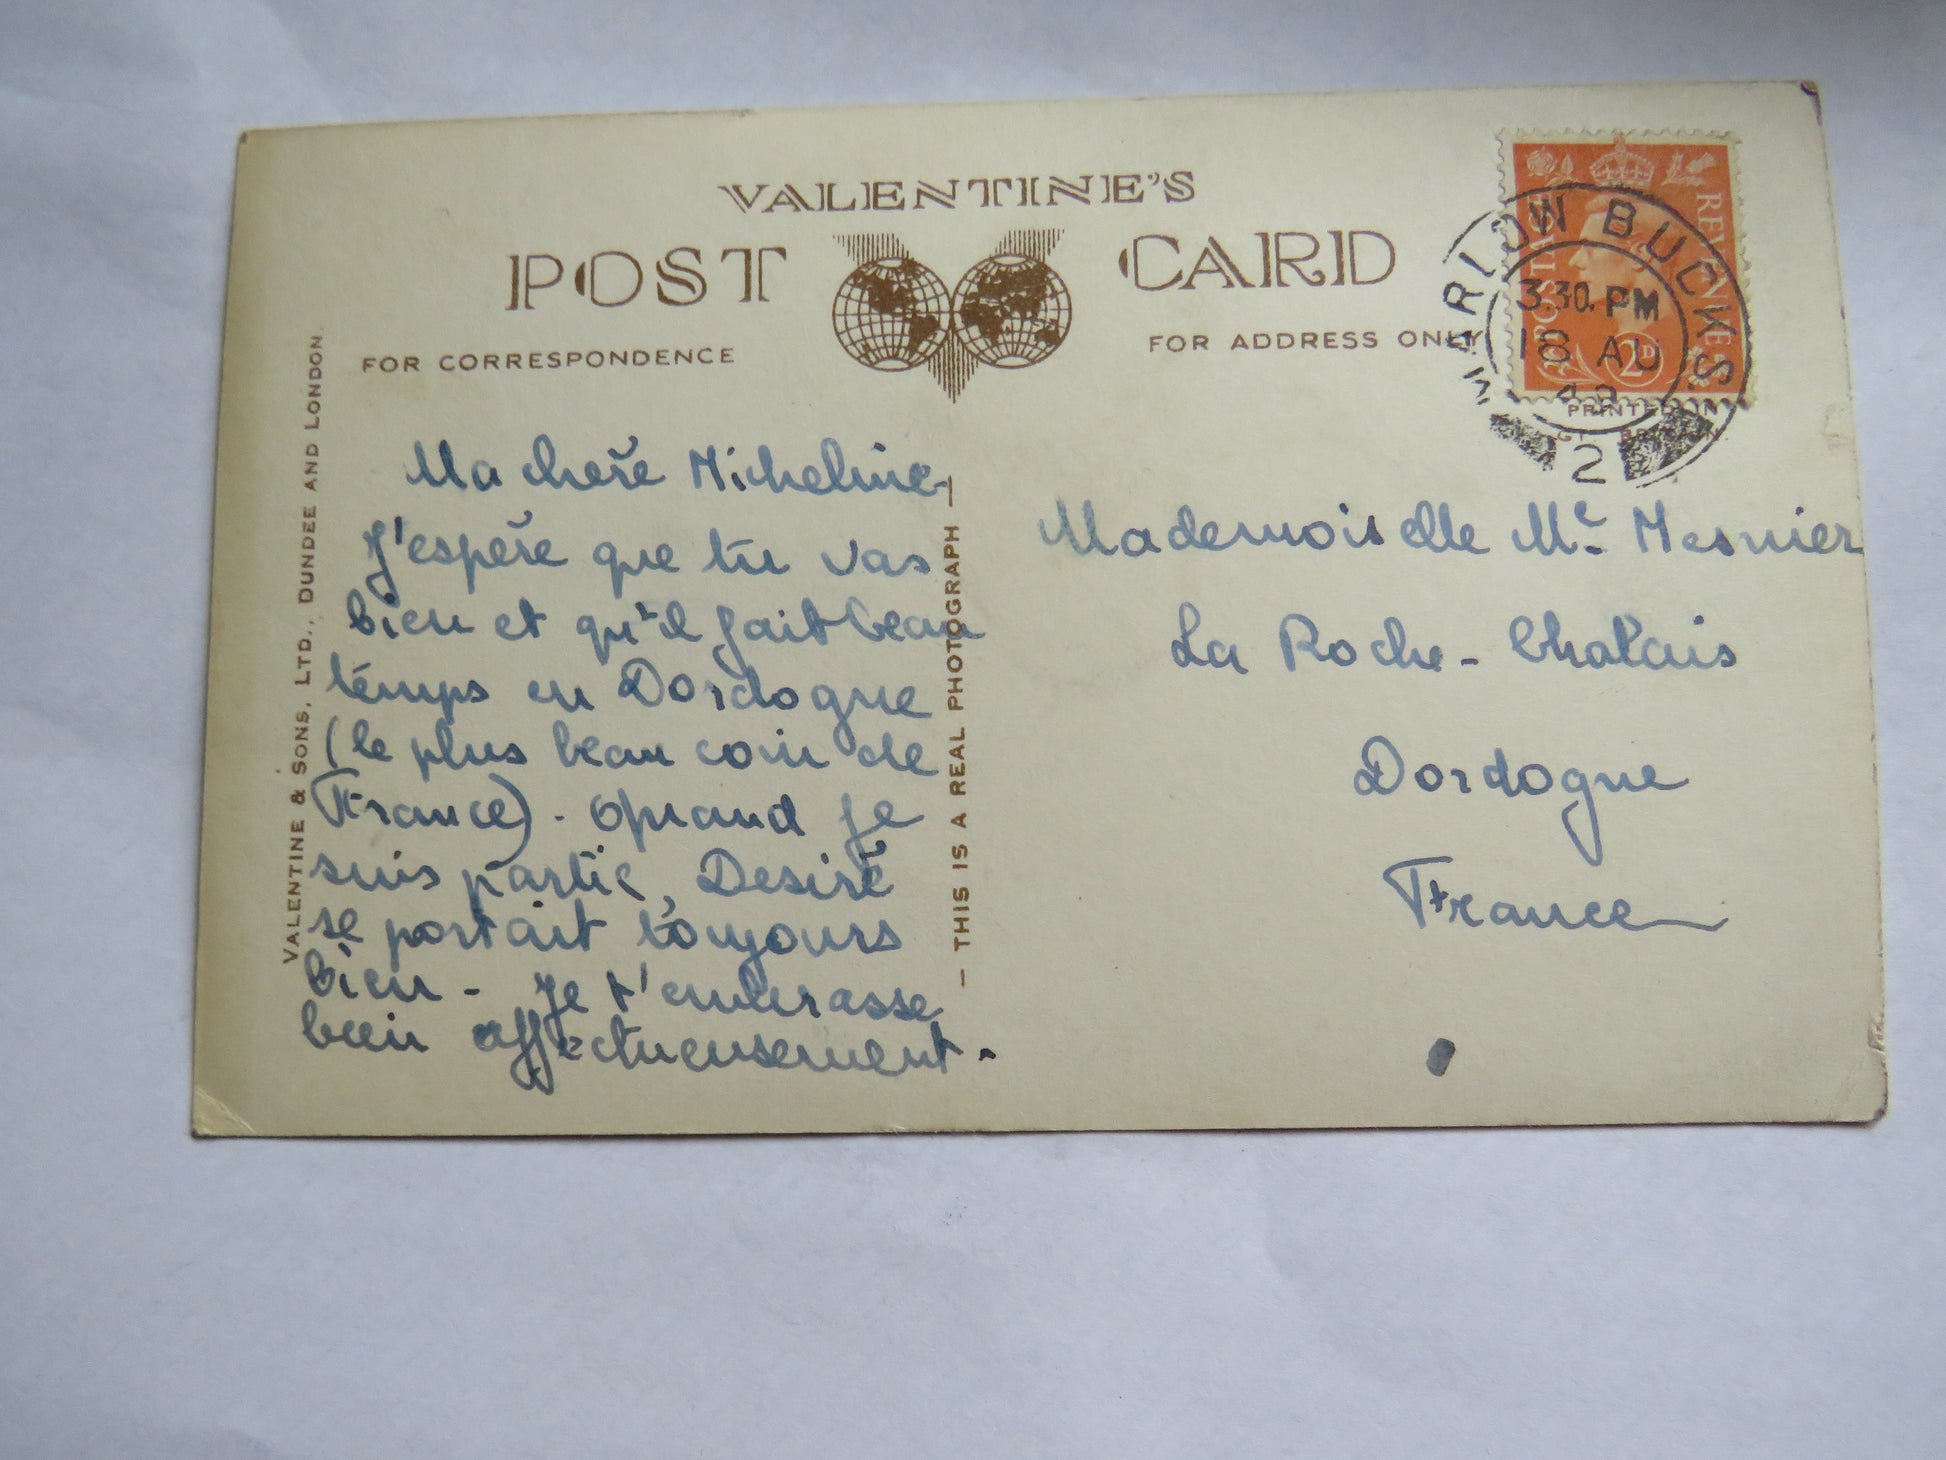 VALENTINE'S
POST CARD
FOR CORRESPONDENCE
FOR ADDRESS ONLY
POSTAGE REVENUE
2D
MARLOW BUCKS
3.30. PM
18 AU
48
2
PRINTED IN
GT. BRITAIN
VALENTINE & SONS, LTD., DUNDEE AND LONDON
— THIS IS A REAL PHOTOGRAPH —
Ma chère Micheline
J'espère que tu vas
bien et qu'il fait beau
temps en Dordogne
(le plus beau coin de
France). Quand je
suis partie, Desiré
se portait toujours
bien - Je t'embrasse
bien affectueusement.
Mademoiselle Me Mesnier
La Roche-Chalais
Dordogne
France